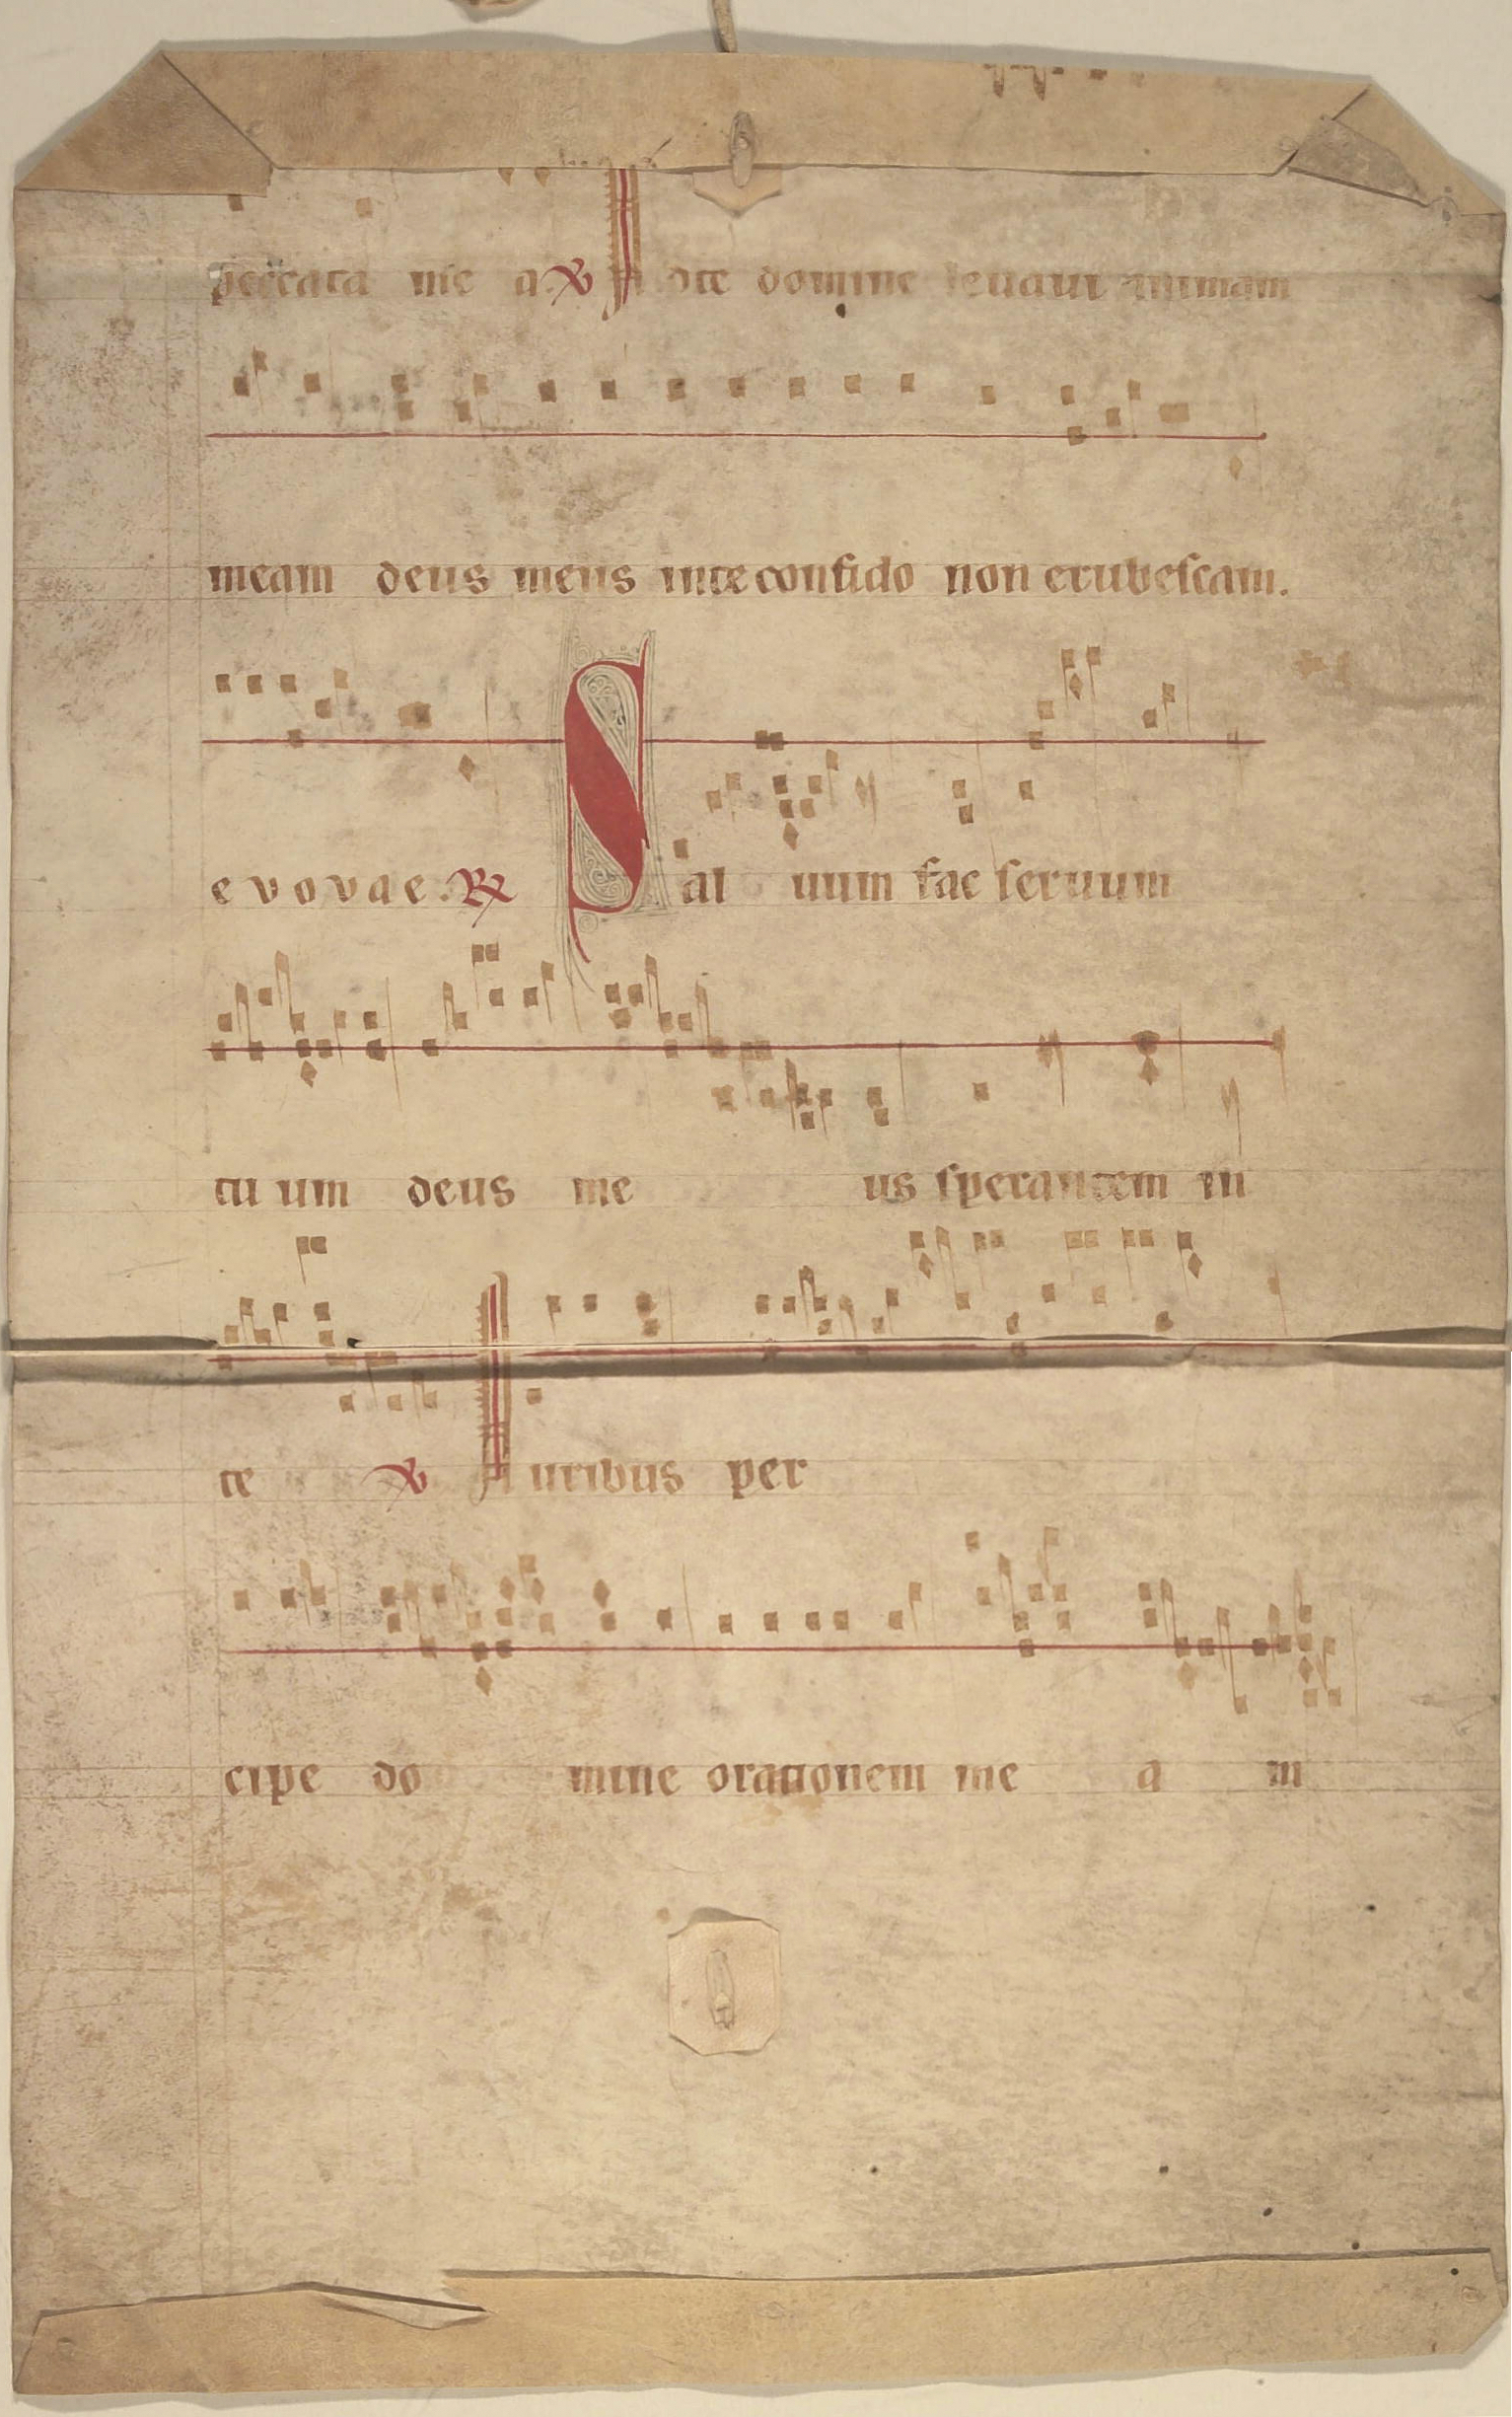 peccata me a. ℣ A dte domine leuaui animam
meam deus meus inte confido non erubescam.
e v o v a e. ℟ Sal uum fac seruum
tu um deus me us sperantem in
te ℣ Auribus per
cipe do mine orationem me a m